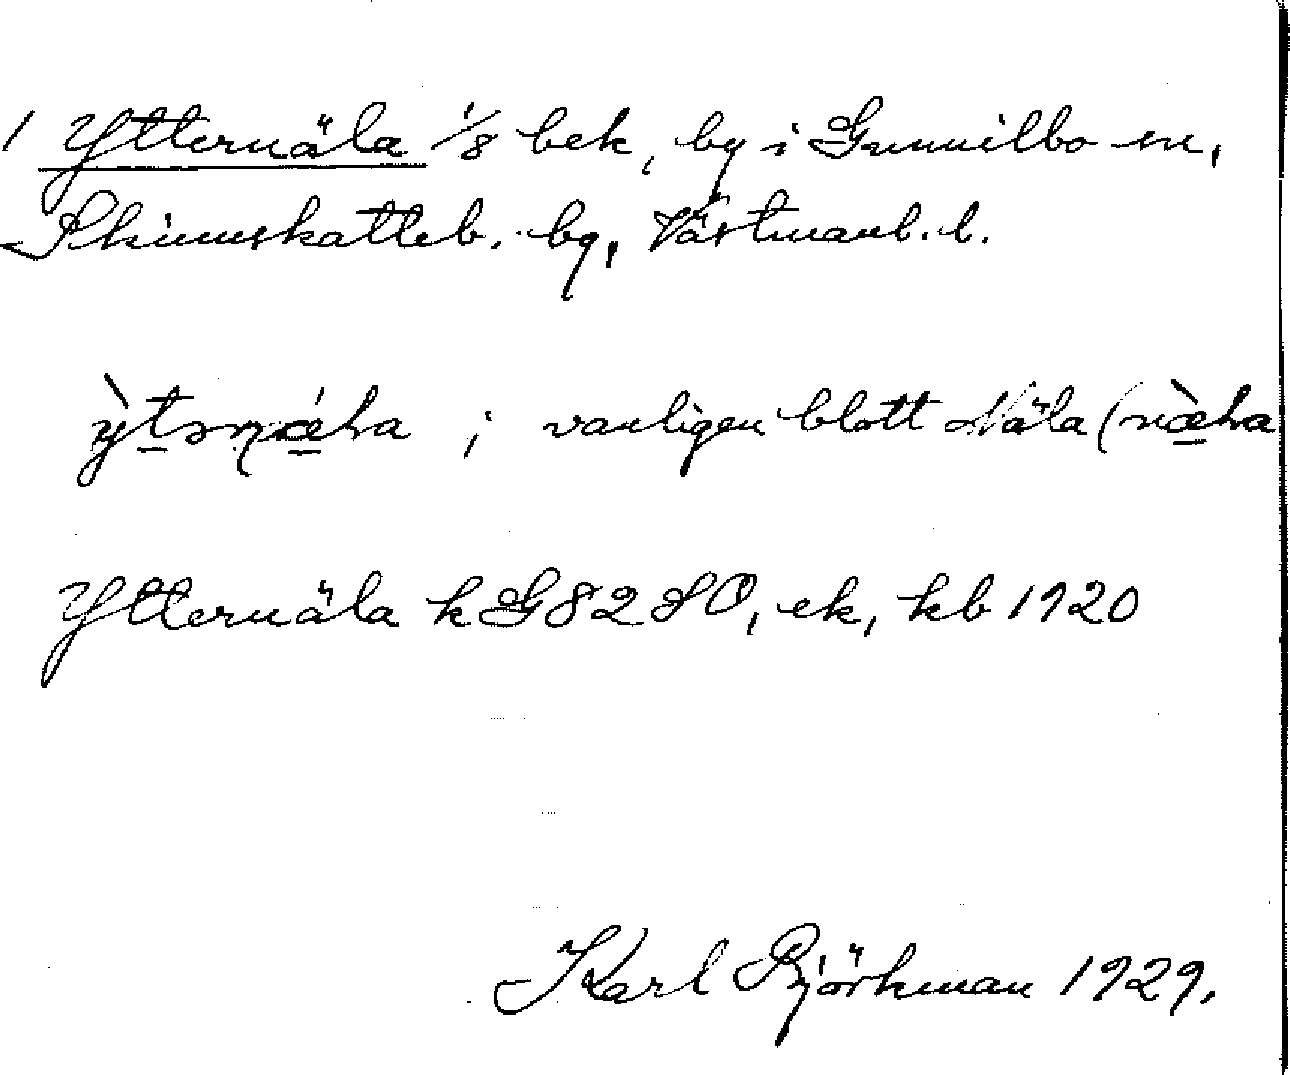 1 Ytternäla 1/8 bek, by i Gunnilbo sn,
Skinnskatteb. bg, Västmanl. l.
; vanligen blott Näla (
Ytternäla k GS2SO, ek, kb 1920
Karl Björkman 1929.